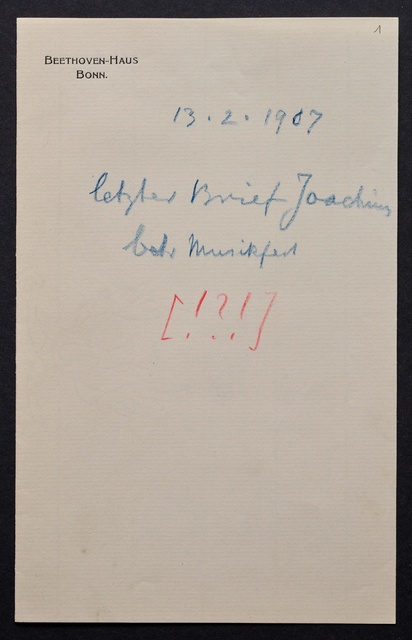 1
BEETHOVEN-HAUS
BONN.
13.2.1907
letzter Brief Joachims
betr Musikfest
[!?!]